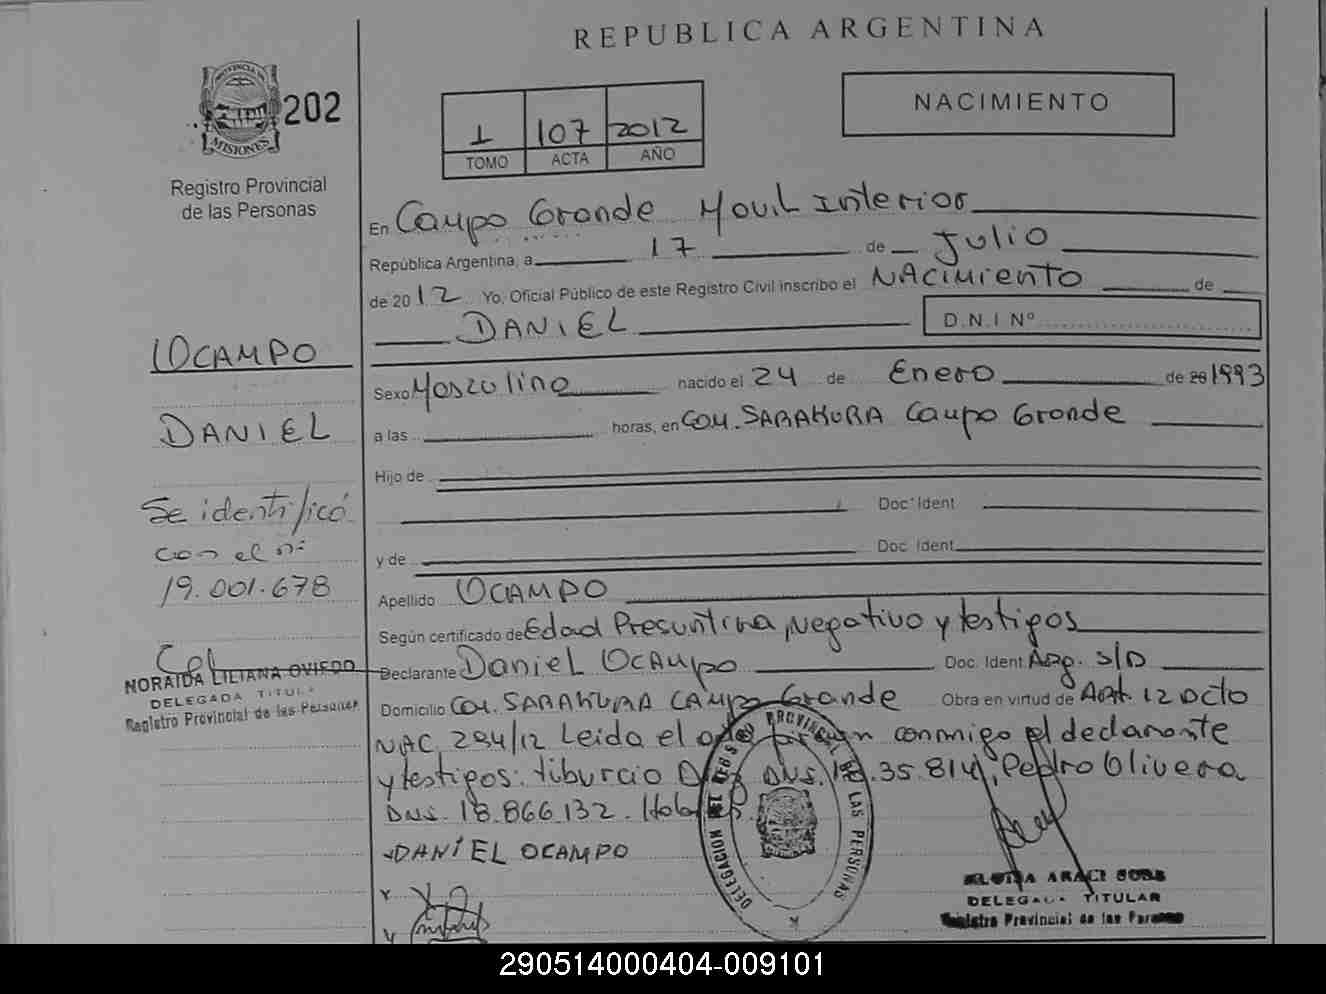 REPUBLICA ARGENTINA
PROVINCIA DE
MISIONES
202
Registro Provincial
de las Personas
1 107 2012
TOMO ACTA AÑO
NACIMIENTO
En Campo Grande Movil Interior
República Argentina, a 17 de Julio
de 2012 Yo, Oficial Público de este Registro Civil inscribo el NAcimiento de
DANIEL D.N.I Nº
Sexo Masculino nacido el 24 de Enero de 20 1993
a las horas, en COM. SARAKURA Campo Grande
Hijo de
Doc Ident
y de Doc Ident
Apellido OCAMPO
Según certificado de Edad Presuntiva, Negativo y testigos
Declarante Daniel Ocampo Doc. Ident. Arg. S/D
Domicilio COM. SARAKURA CAMpo Grande Obra en virtud de Art. 12 Dcto
NAC. 294/12 Leida el firman conmigo el declarante
y testigos: tiburcio DNI. 35.814, Pedro Olivera
DNI. 18.866.132.
DANIEL OCAMPO
OCAMPO
DANIEL
Se identificó
con el nº
19.001.678
NORAIDA LILIANA OVIEDO
DELEGADA TITULAR
Registro Provincial de las Personas
DELEGACION REG PROVINCIAL DE LAS PERSONAS
ARACI
DELEGADA TITULAR
Registro Provincial de las Personas
290514000404-009101